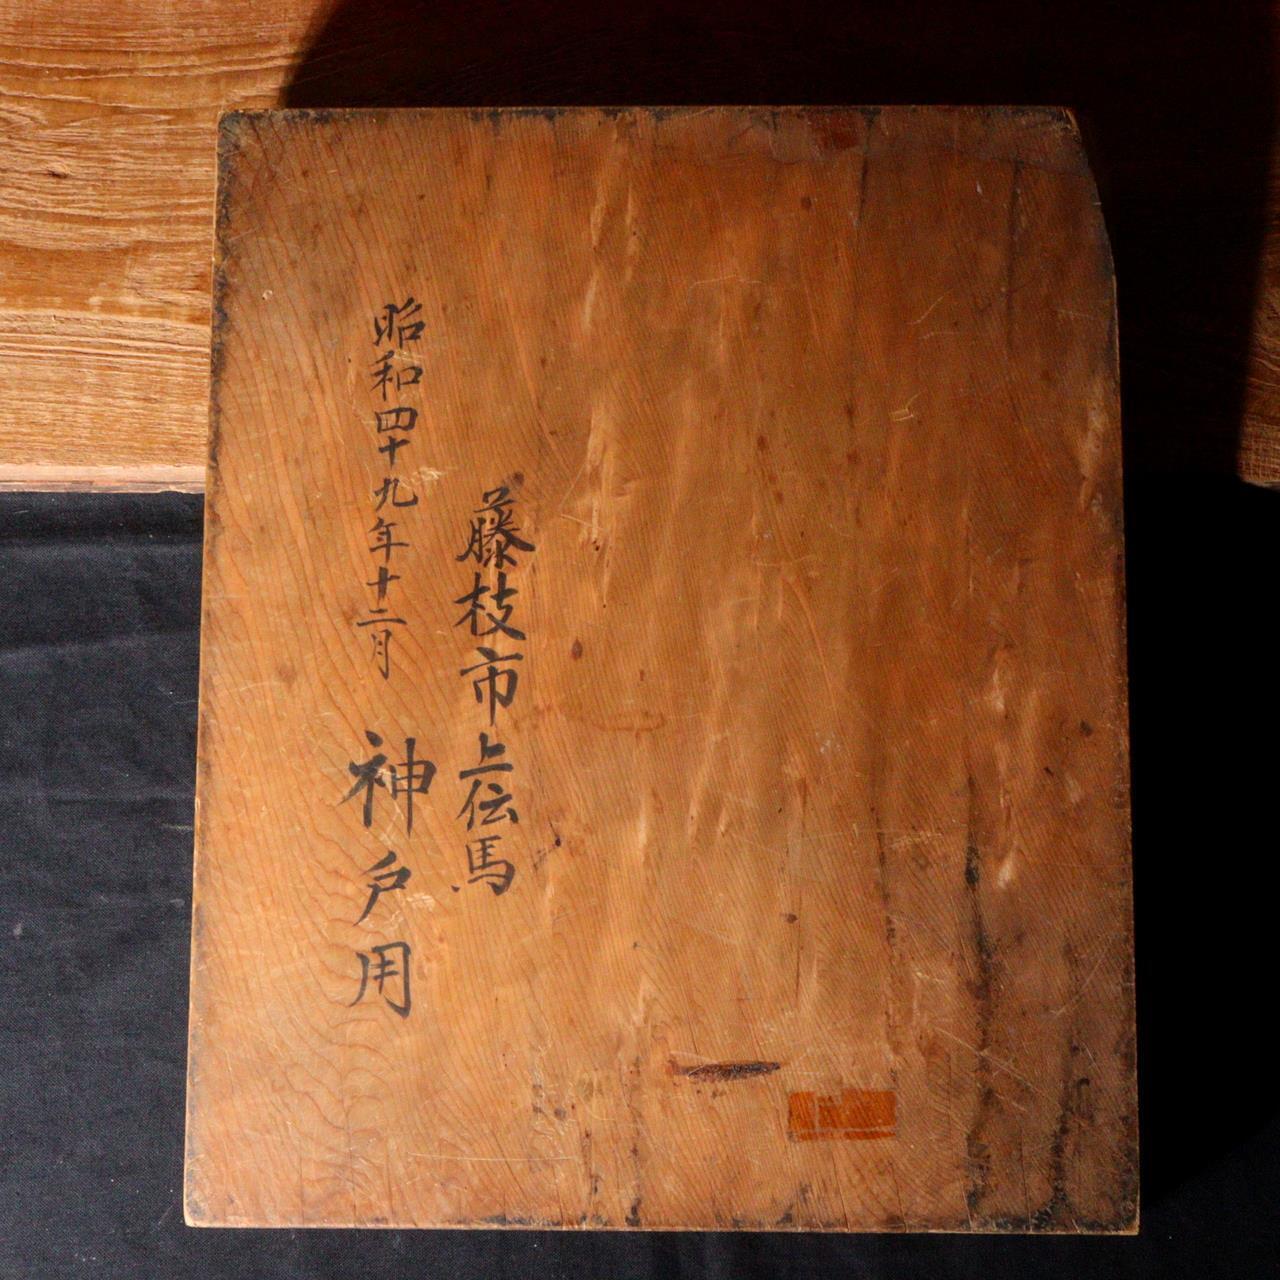 藤枝市上伝馬
昭和四十九年十二月 神戸用